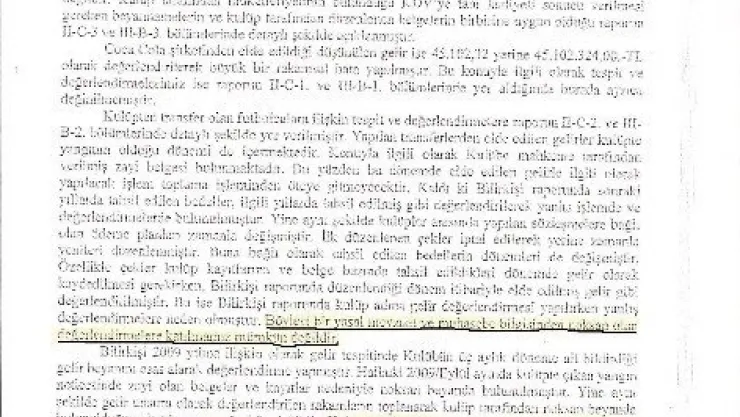 gereken beyannamelerin ve kulüp tarafından düzenlenen belgelerin birbirine uygun olduğu raporun
II-C-3 ve III-B-3. bölümlerinde detaylı şekilde açıklanmıştır.
Coca Cola şirketinden elde edildiği düşünülen gelir ise 45.102,32 yerine 45.102.324,00.-TL
olarak değerlendirilerek büyük bir rakamsal hata yapılmıştır. Bu konuyla ilgili olarak tespit ve
değerlendirmelerimiz ise raporun II-C-1. ve III-B-1. bölümlerinde yer aldığında burada ayrıca
değinilmemiştir.
Kulüpten transfer olan futbolculara ilişkin tespit ve değerlendirmelere raporun II-C-2. ve III-
B-2. bölümlerinde detaylı şekilde yer verilmiştir. Yapılan transferlerden elde edilen gelirler kulüpte
yangının olduğu dönemi de içermektedir. Konuyla ilgili olarak Kulübe mahkeme tarafından
verilmiş zayi belgesi bulunmaktadır. Bu yüzden bu dönemde elde edilen gelirle ilgili olarak
yapılacak işlem toplama işleminden öteye gitmeyecektir. Kaldı ki Bilirkişi raporunda sonraki
yıllarda tahsil edilen bedeller, ilgili yıllarda tahsil edilmiş gibi değerlendirilerek yanlış işlemde ve
değerlendirmelerde bulunulmuştur. Yine aynı şekilde kulüpler arasında yapılan sözleşmelere bağlı
olan ödeme planları zamanla değişmiştir. İlk düzenlenen çekler iptal edilerek yerine zamanla
yenileri düzenlenmiştir. Buna bağlı olarak tahsil edilen bedellerin dönemleri de değişmiştir.
Özellikle çekler kulüp kayıtlarına ve belge bazında tahsil edildikleri dönemde gelir olarak
kaydedilmesi gerekirken, Bilirkişi raporunda düzenlendiği dönem itibariyle elde edilmiş gelir gibi
değerlendirilmiştir. Bu ise Bilirkişi raporunda kulüp adına gelir değerlendirmesi yapılırken yanlış
değerlendirmelere neden olmuştur. Böylesi bir yasal mevzuat ve muhasebe bilgisinden noksan olan
değerlendirmelere katılmamız mümkün değildir.
Bilirkişi 2009 yılına ilişkin olarak gelir tespitinde Kulübün üç aylık dönemde ait bildirdiği
gelir beyanını esas alarak değerlendirme yapmıştır. Halbuki 2009/Eylül ayında kulüpte çıkan yangın
neticesinde zayi olan belgeler ve kayıtlar nedeniyle noksan beyanda bulunulmuştur. Yine aynı
şekilde gelir unsuru olarak değerlendirilen rakamların toplanarak kulüp tarafından noksan beyanda